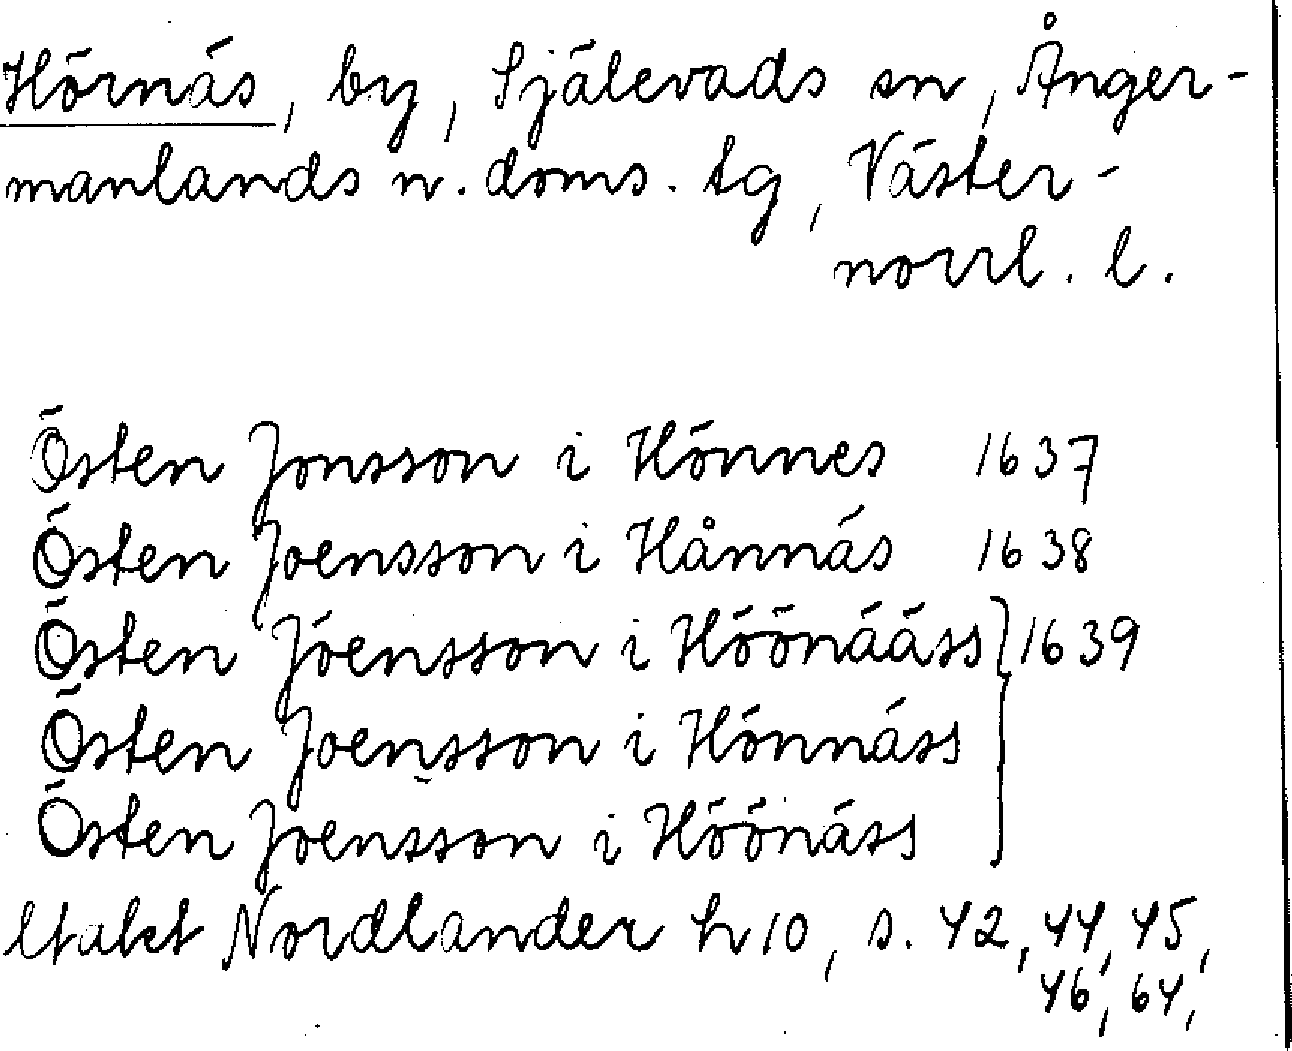 Hörnäs, by, Själevads sn, Ånger-
manlands n. doms. tg, Väster-
norrl. l.
Östen Jonsson i Hönnes 1637
Östen Joensson i Hånnäs 1638
Östen Jöensson i Höönääss } 1639
Östen Joensson i Hönnäss
Östen Joensson i Höönäss
Utakt Nordlander h 10, s. 42, 44, 45,
46, 64,